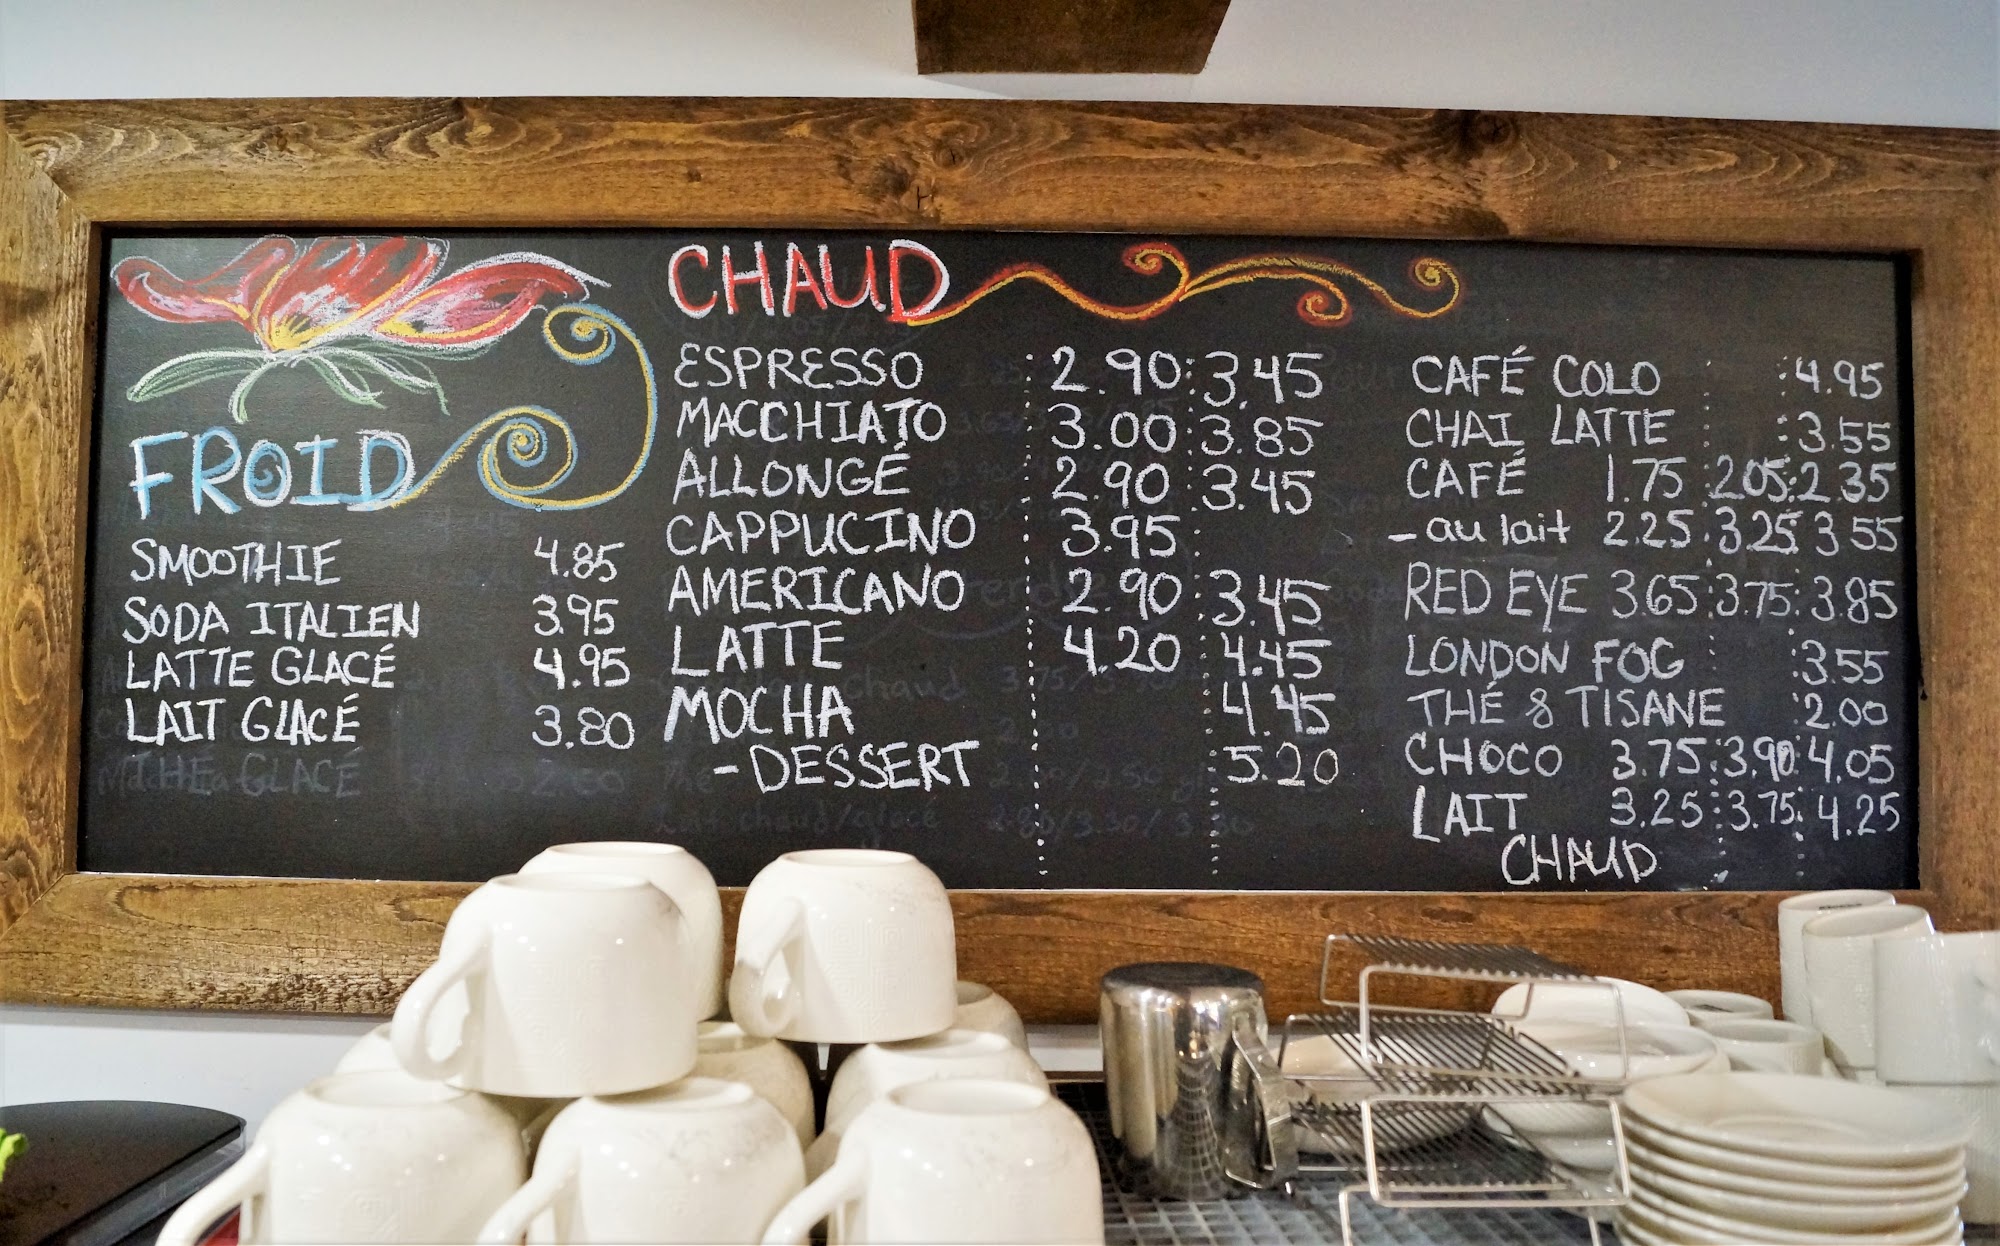 FROID
SMOOTHIE 4.85
SODA ITALIEN 3.95
LATTE GLACÉ 4.95
LAIT GLACÉ 3.80
THÉ GLACÉ
CHAUD
ESPRESSO 2.90 3.45
MACCHIATO 3.00 3.85
ALLONGÉ 2.90 3.45
CAPPUCINO 3.95
AMERICANO 2.90 3.45
LATTE 4.20 4.45
MOCHA 4.45
- DESSERT 5.20
CAFÉ COLO 4.95
CHAI LATTE 3.55
CAFÉ 1.75 2.05 2.35
- au lait 2.25 3.25 3.55
RED EYE 3.65 3.75 3.85
LONDON FOG 3.55
THÉ & TISANE 2.00
CHOCO 3.75 3.90 4.05
LAIT 3.25 3.75 4.25
CHAUD